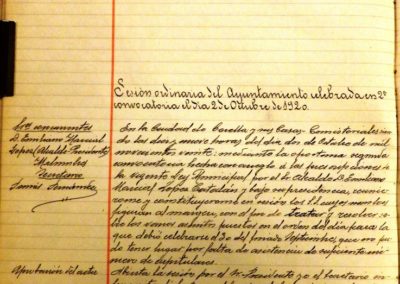 Sesión ordinaria del Ayuntamiento celebrada en 2ª
convocatoria el día 2 de Octubre de 1920.
Sres concurrentes
D. Emiliano Marical
López (Alcalde Presidente)
Tomás
En la Ciudad de Corella y sus Casas Consistoriales siendo
las diez y media horas del día dos de Octubre de mil
novecientos veinte; mediante la oportuna segunda
convocatoria hecha con arreglo a las prescripciones de
la vigente Ley Municipal por el Sr Alcalde D. Emiliano
López y bajo su presidencia, reunie
ronse y constituyeron en sesión los SS. cuyos nombres
figuran al margen, con el fin de tratar y resolver so
bre los varios asuntos puestos en el orden del día para la
que debió celebrarse el 30 del pasado Septiembre, que no pu
do tener lugar por falta de asistencia de suficiente nú
mero de capitulares.
Aprobación del acta
Abierta la sesión por el Sr Presidente yo el Secretario